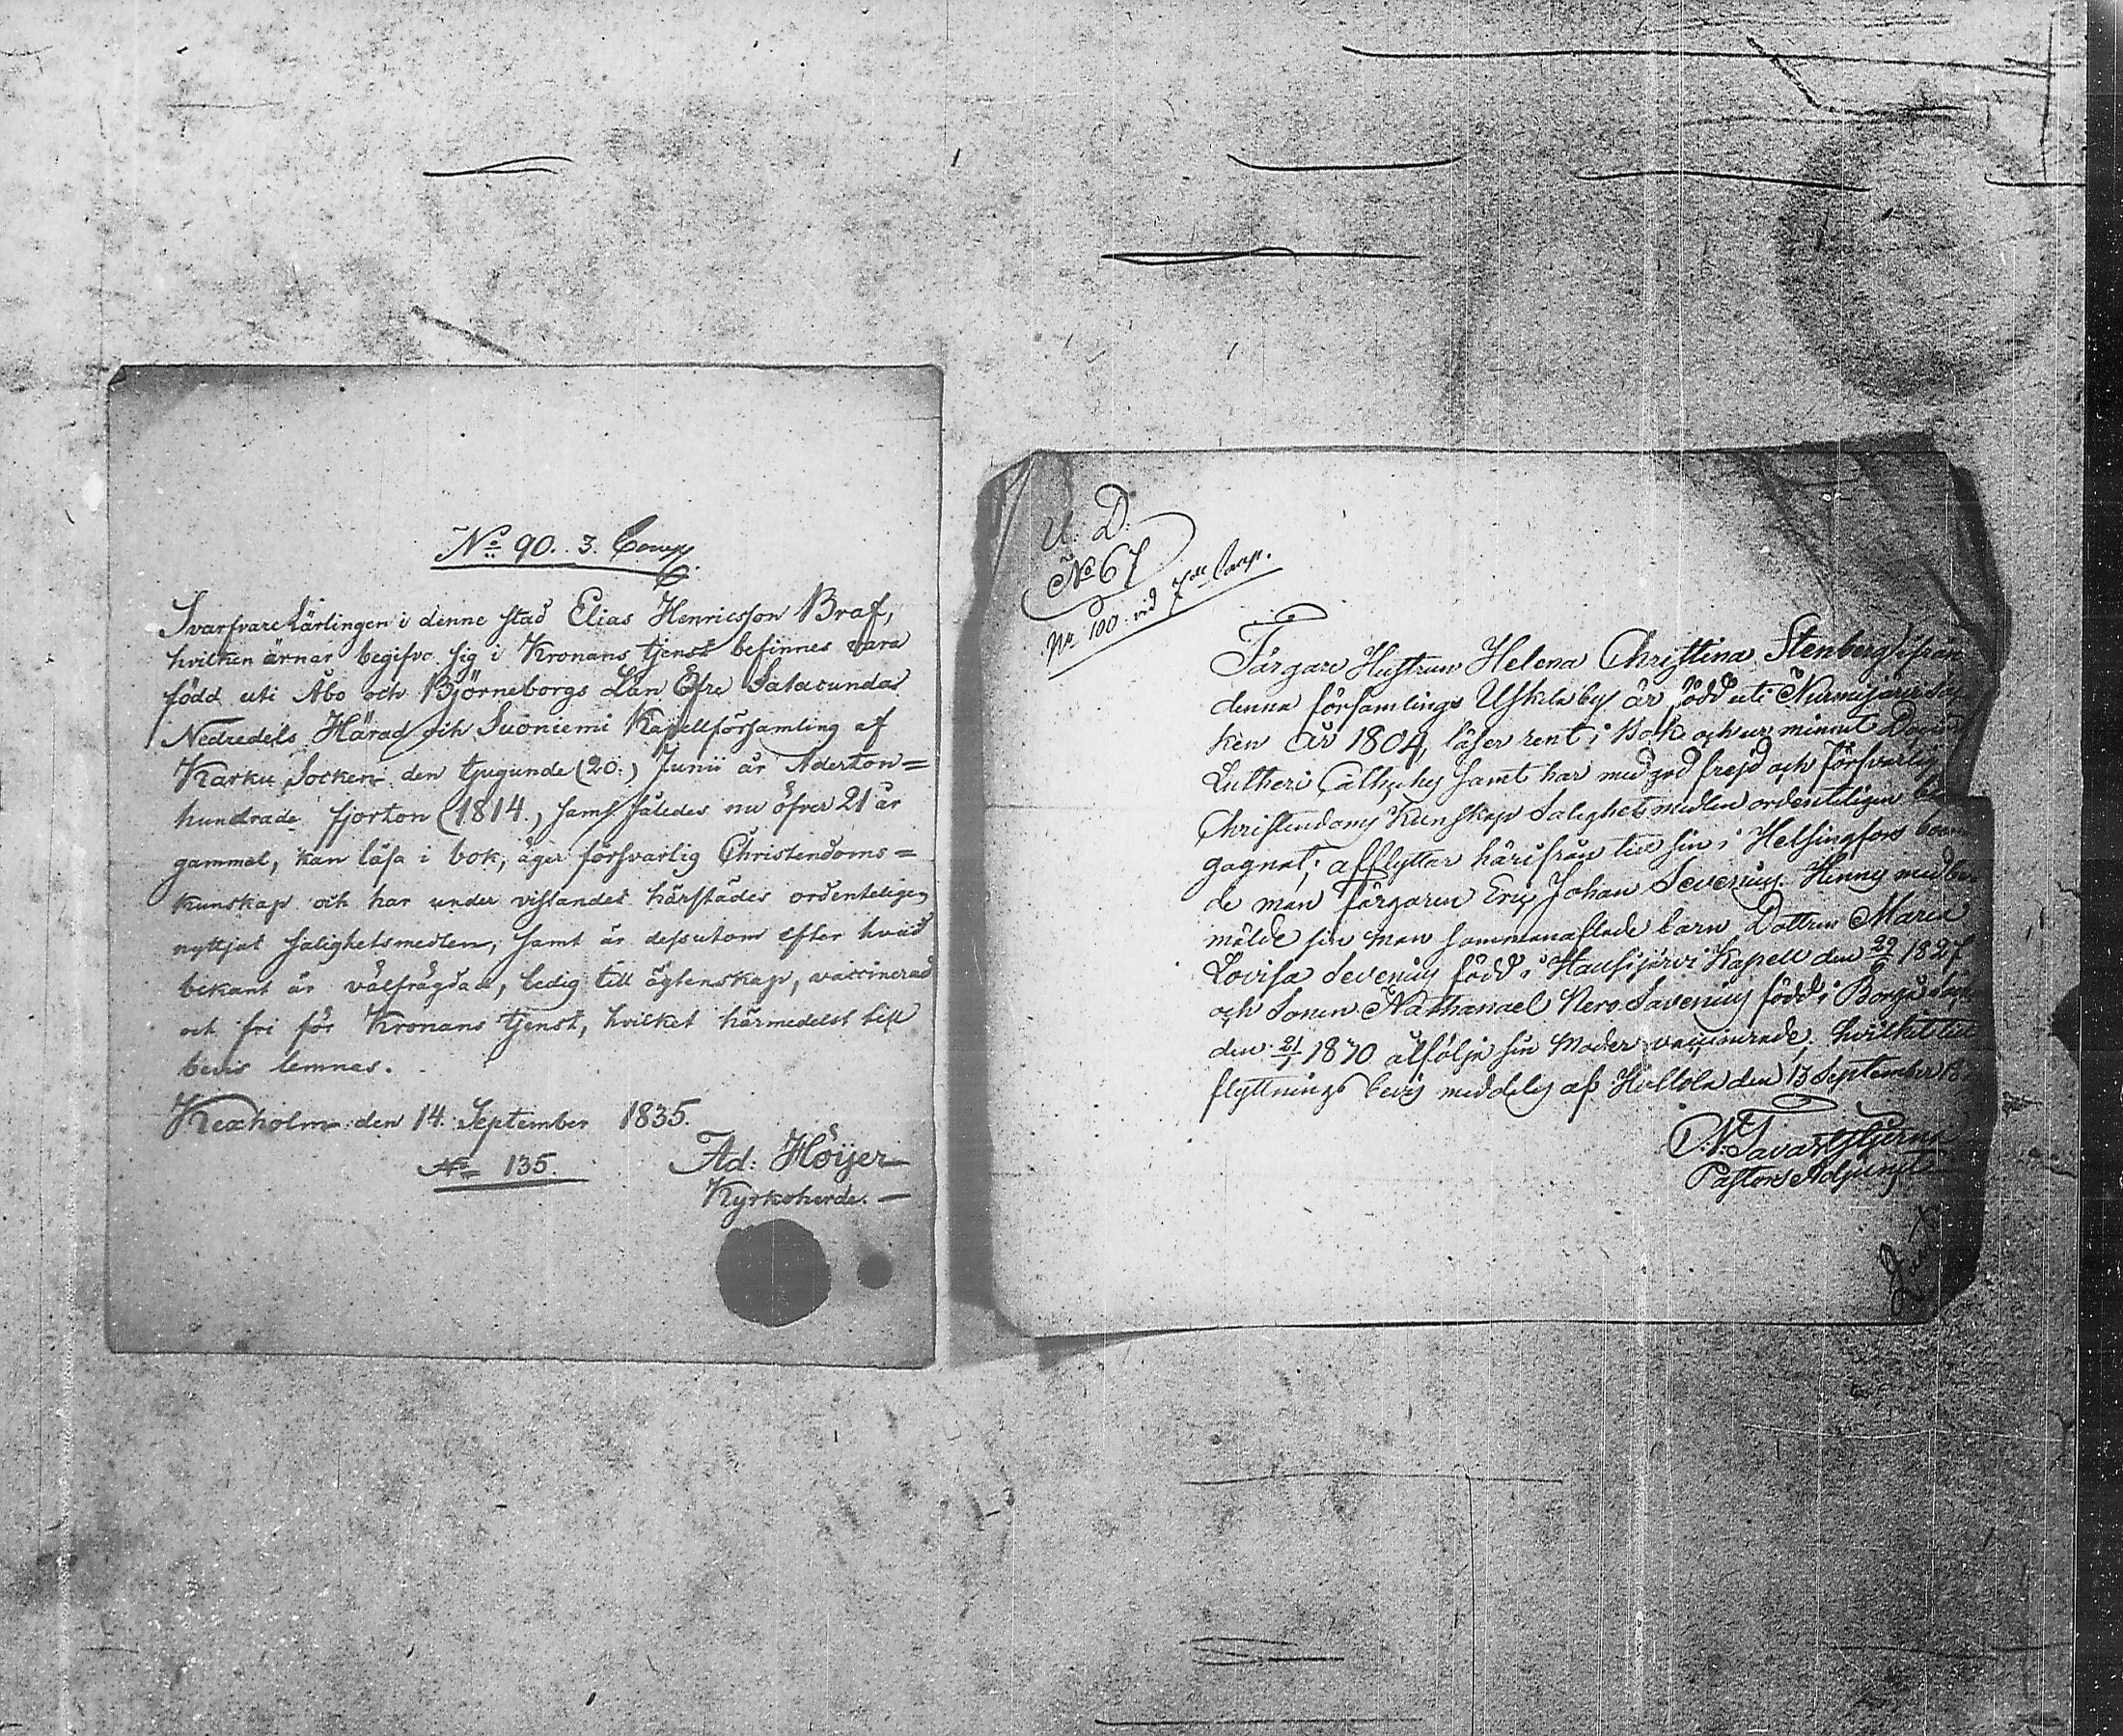 No 90. 3. Comp.
Svarfvare Lärlingen i denne stad Elias Henricsson Braf,
hvilken ärnar begifva sig i Kronans tjenst befinnes vara
född uti Åbo och Björneborgs Län Öfre Satacundas
Nedredels Härad och Suoniemi Kapellförsamling af
Karku Socken den tjugunde (20.) Junii år Aderton=
hundrade fjorton (1814.) samt således nu öfver 21 år
gammal, kan läsa i bok, äger försvarlig Christendoms=
kunskap och har under vistandet härstädes ordenteligen
nyttjat salighetsmedlen, samt är dessutom efter hvad
bekant är välfrägdad, ledig till ägtenskap, vaccinerad
och fri för Kronans tjenst, hvilket härmedelst till
bevis lemnas.
Kexholm den 14. September 1835.
No 135.
Ad: Höijer
Kyrkoherde.
U. D.
No 67
No 100. vid Comp.
Färgare Hustrun Helena Christina Stenberg ifrån
denna församlings Uskila by är född uti Nurmijärvi
ken år 1804, läser rent i bok och ur minnet
Lutheri Catheches samt har med god frejd och försvarlig
Christendoms Kunskap Salighetsmedlen ordenteligen
gagnat; afflyttar härifrån till sin i Helsingfors
de man färgaren Eric Johan Sevenius. Hennes med be-
mälde sin man sammanaflade barn Dottren Maria
Lovisa Sevenius född i Hausjärvi Kapell den 29/6 1827
och Sonen Nathanael Nero Savenius född i Borgå
den 21/1 1830 åtfölja sin Moder, vaccinerade. hvilket till
flyttnings bevis meddelas af Hollola den 13 September
N: Tavaststjerna
Pastors Adjunct